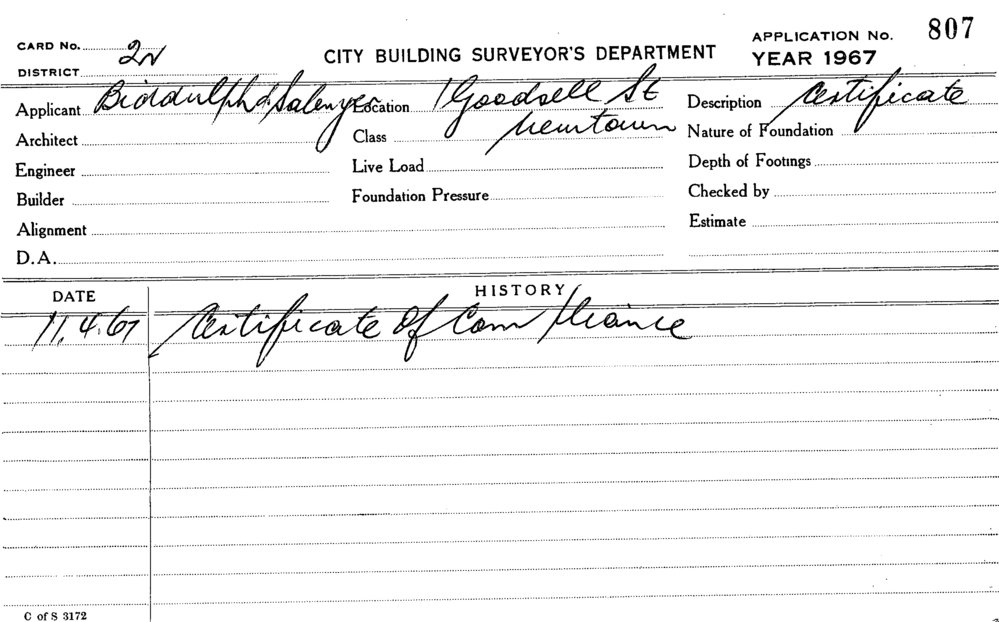 CARD No. 2N
DISTRICT
CITY BUILDING SURVEYOR'S DEPARTMENT
APPLICATION No. 807
YEAR 1967
Applicant Biddulph & Salenger Location 1 Goodsell St Description Certificate
Architect Class Newtown Nature of Foundation
Engineer Live Load Depth of Footings
Builder Foundation Pressure Checked by
Alignment Estimate
D.A.
DATE HISTORY
11.4.67 Certificate Of Compliance
C of S 3172